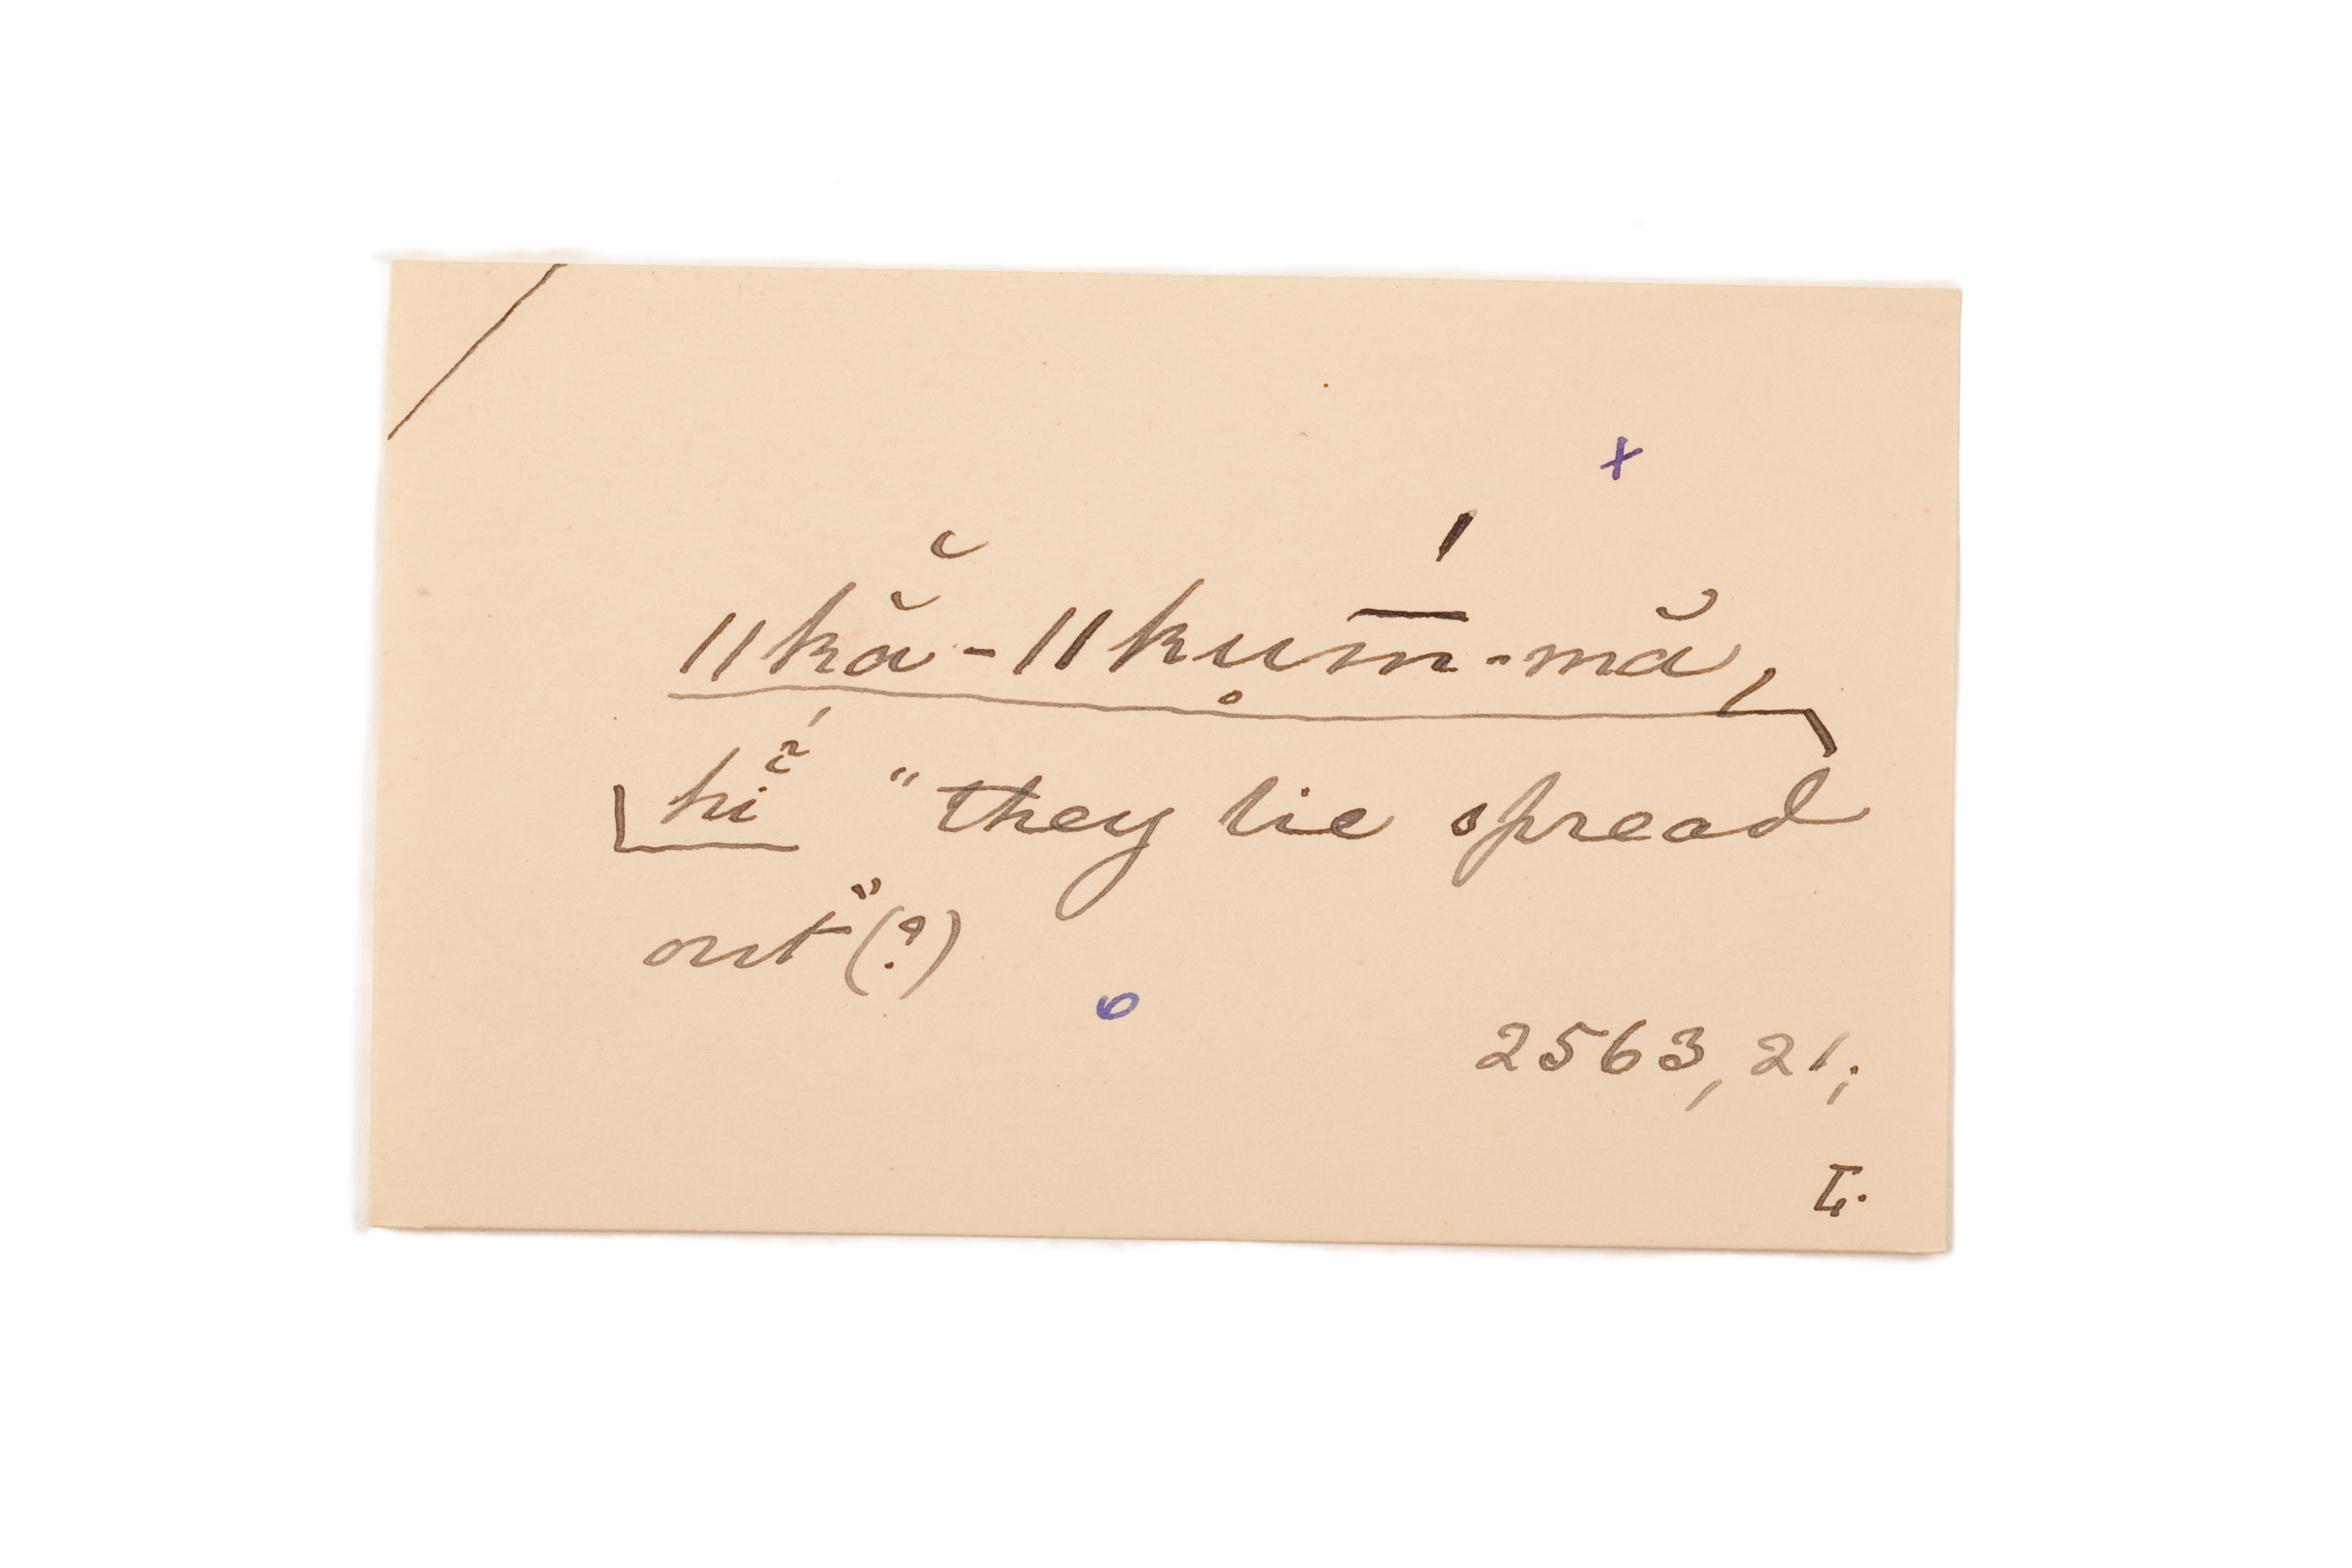 +
ǁkă̆-ǁku̥m̄́-mă,
hĭ̃́ "they lie spread
out"(?)
o
2563, 21;
L.